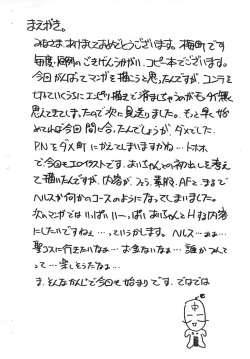 まえがき。
みなさま、あけましておめでとうございます。梅町です
毎度、恒例のごきげんうかがい、コピー本でございます。
今回がんばってマンガを描こうと思ったんですが、コンテを
切っていくうちにエンピツ描きで済ましちゃうのがもう無
思えてきてしまったので次に見送りました。もっと早く始
めてれば今回間に合ったんでしょうが、ダメでした。
P.Nをダメ町にかえてしまいますかね…トホホ
で今回もエロイラストです。おっちゃんとの初出しを考え
て描いたんですが、内容が、フェラ、素股、AFと、まるで
ヘルスか何かのコースのようになってしまいました。
次のマンガではいっぱいいーっぱいおっちゃんとHする内容
にしたいですねぇ…っていうかします。ヘルス…ああ…
聖コスに行きたいなぁ…お金ないなぁ…誰かつれて
って…楽しそうだなぁ…
ま、そんなかんじで今回も始まりです。ではでは
中